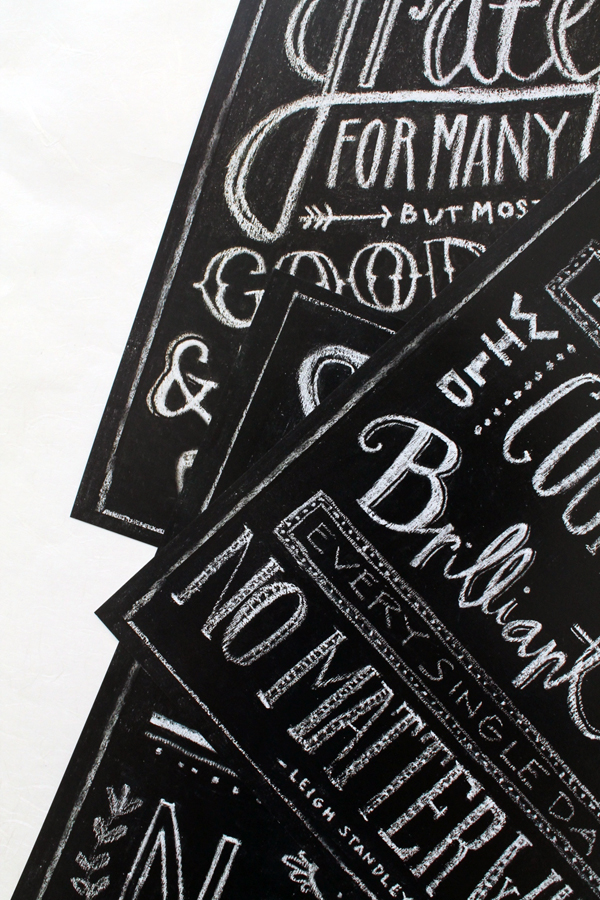 grate
FOR MANY
BUT MOST
GOOD
&
Brilliant
EVERY SINGLE DA
NO MATTER W
-LEIGH STANDLEY
N